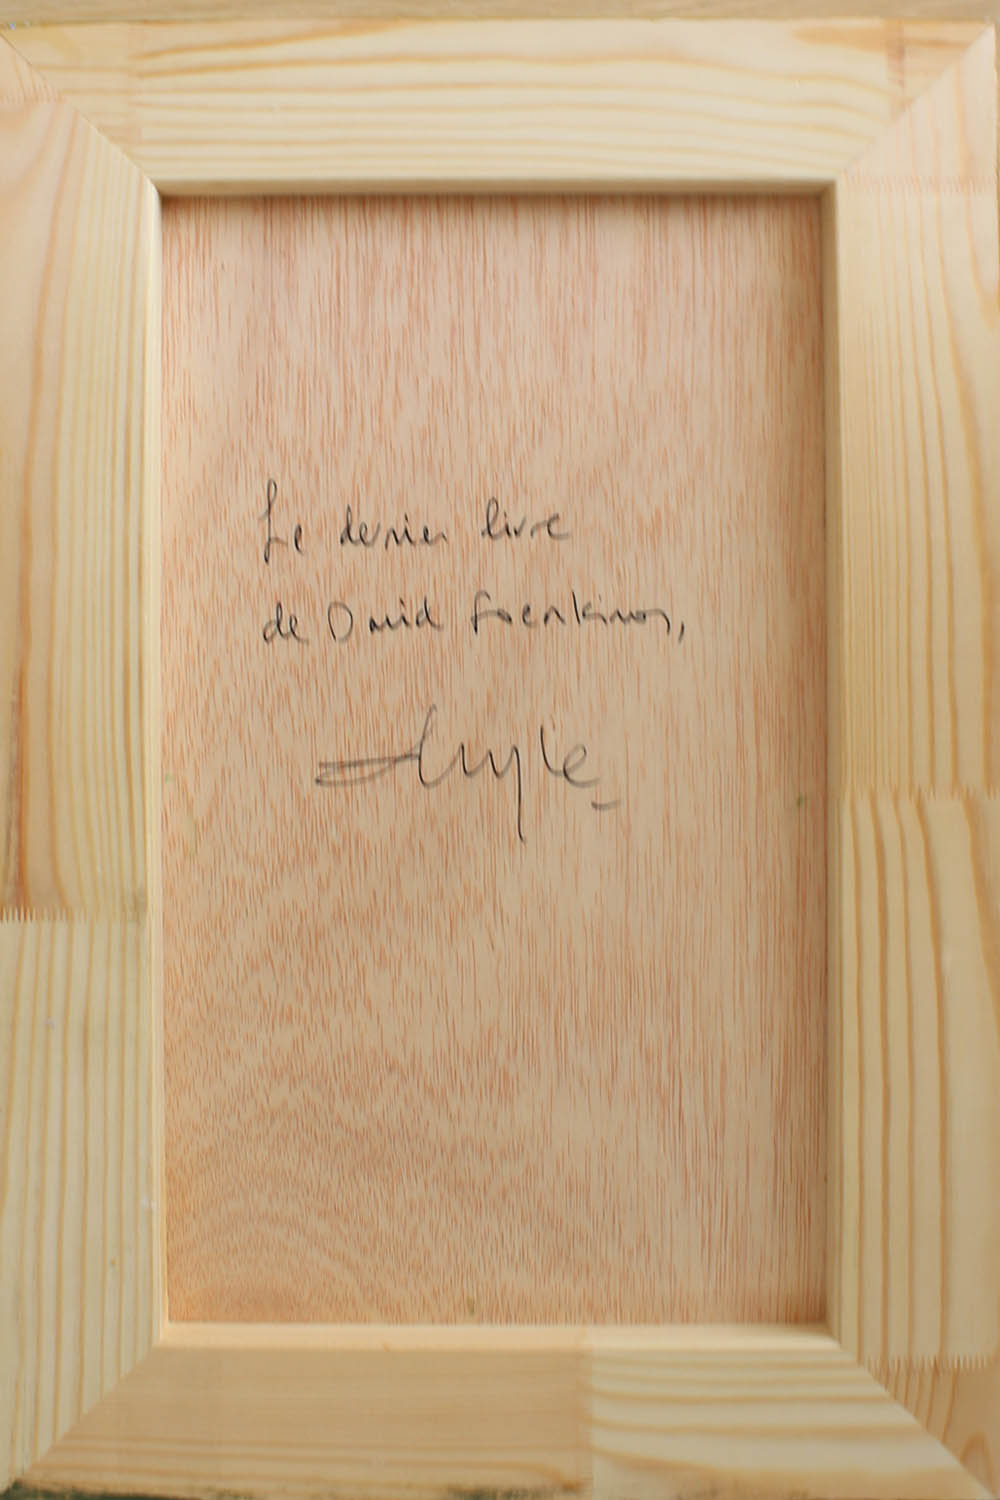 Le dernier livre
de David Foenkinos,